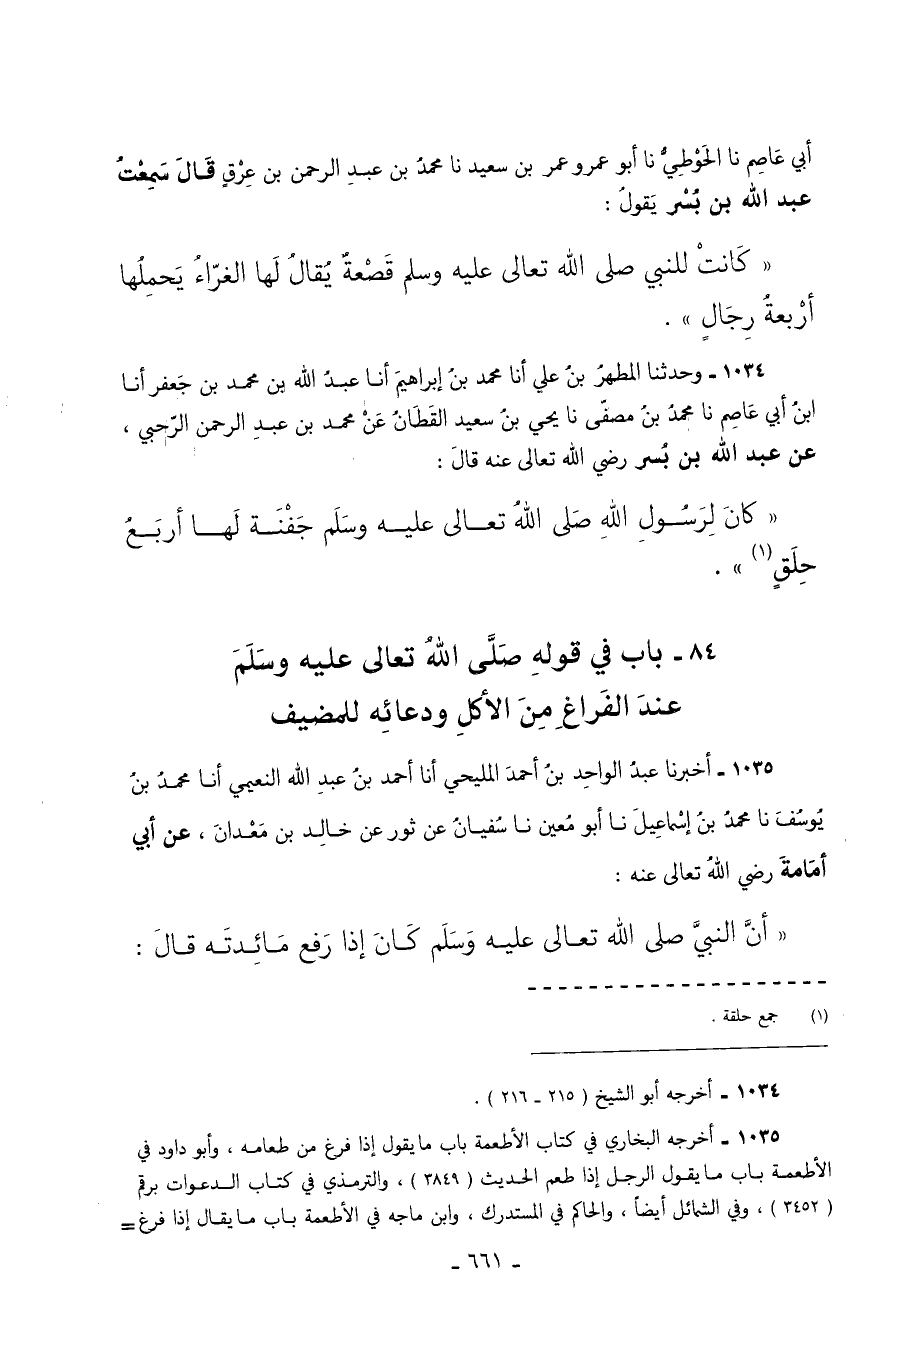 أبي عَاصِم نا الحَوْطِيُّ نا أبو عمرو عمر بن سعيد نا محمدُ بن عبدِ الرحمن بن عِرْقٍ قَالَ سَمِعْتُ
عبد الله بن بُسْر يَقولُ :
« كَانَتْ للنبي صلى الله تعالى عليه وسلم قَصْعةٌ يُقالُ لَها الغرّاءُ يَحمِلُها
أرْبعةُ رِجَالٍ » .
١٠٣٤ ـ وحدثنا المطهرُ بنُ علي أنا محمد بنُ إبراهيمَ أنا عبدُ الله بن محمد بن جَعفر أنا
ابنُ أبي عَاصِم نا محمدُ بنُ مصفّى نا يحي بنُ سعيد القَطَانُ عَنْ محمد بن عبدِ الرحمن الرّحبي ،
عن عبد الله بن بُسر رضي الله تعالى عنه قالَ :
« كانَ لِرَسُولِ اللهِ صَلى اللهُ تعالى عليه وسَلَم جَفْنَة لَها أربَعُ
حِلَقٍ(١) » .
٨٤ ـ باب في قولهِ صَلَّى اللهُ تعالى عليه وسَلَمَ
عندَ الفَراغِ مِنَ الأكلِ ودعائِه للمضيف
١٠٣٥ ـ أخبرنا عبدُ الواحِدِ بنُ أحمدَ المليحي أنا أحمد بنُ عبدِ الله النعيمي أنا محمدُ بنُ
يُوسُفَ نا محمدُ بنُ إسْماعيلَ نا أبو مُعين نا سُفيانُ عن ثور عن خالد بن مَعْدانَ ، عن أبي
أمَامةَ رضي اللهُ تعالى عنه :
« أنَّ النبيَّ صلى الله تعالى عليه وَسَلَم كَانَ إذا رَفع مَائِدتَه قالَ :
(١) جمع حلقة .
١٠٣٤ ـ أخرجه أبو الشيخ ( ٢١٥ ـ ٢١٦ ) .
١٠٣٥ ـ أخرجه البخاري في كتاب الأطعمة باب مايقول إذا فرغ من طعامه ، وأبو داود في
الأطعمة باب مايقول الرجل إذا طعم الحديث ( ٣٨٤٩ ) ، والترمذي في كتاب الدعوات برقم
( ٣٤٥٢ ) ، وفي الشمائل أيضاً ، والحاكم في المستدرك ، وابن ماجه في الأطعمة باب مايقال إذا فرغ=
ـ ٦٦١ ـ